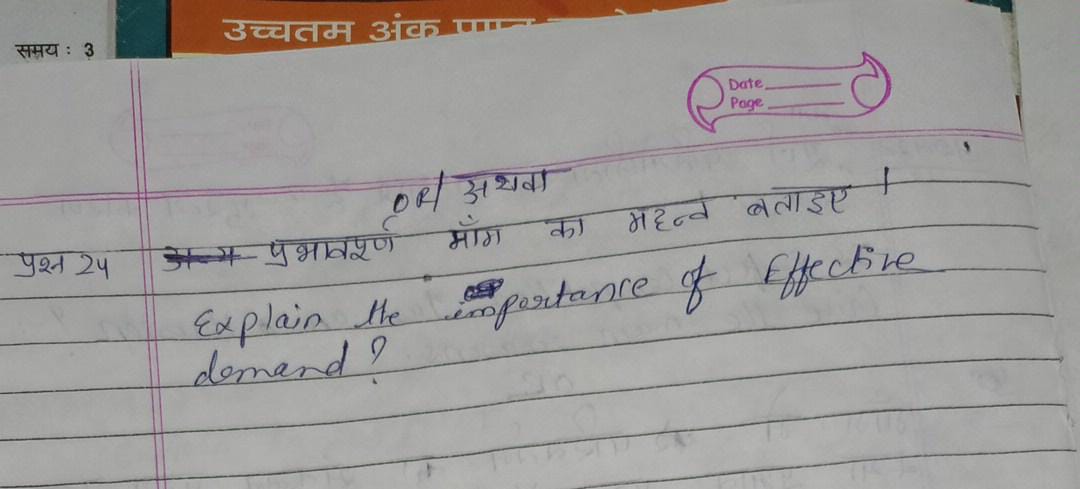 उच्चतम अंक प्राप्त
समय : 3
Date
Page
OR/ अथवा
प्रश्न 24 प्रभावपूर्ण माँग का महत्व बताइए ।
Explain the importance of Effective
demand ?